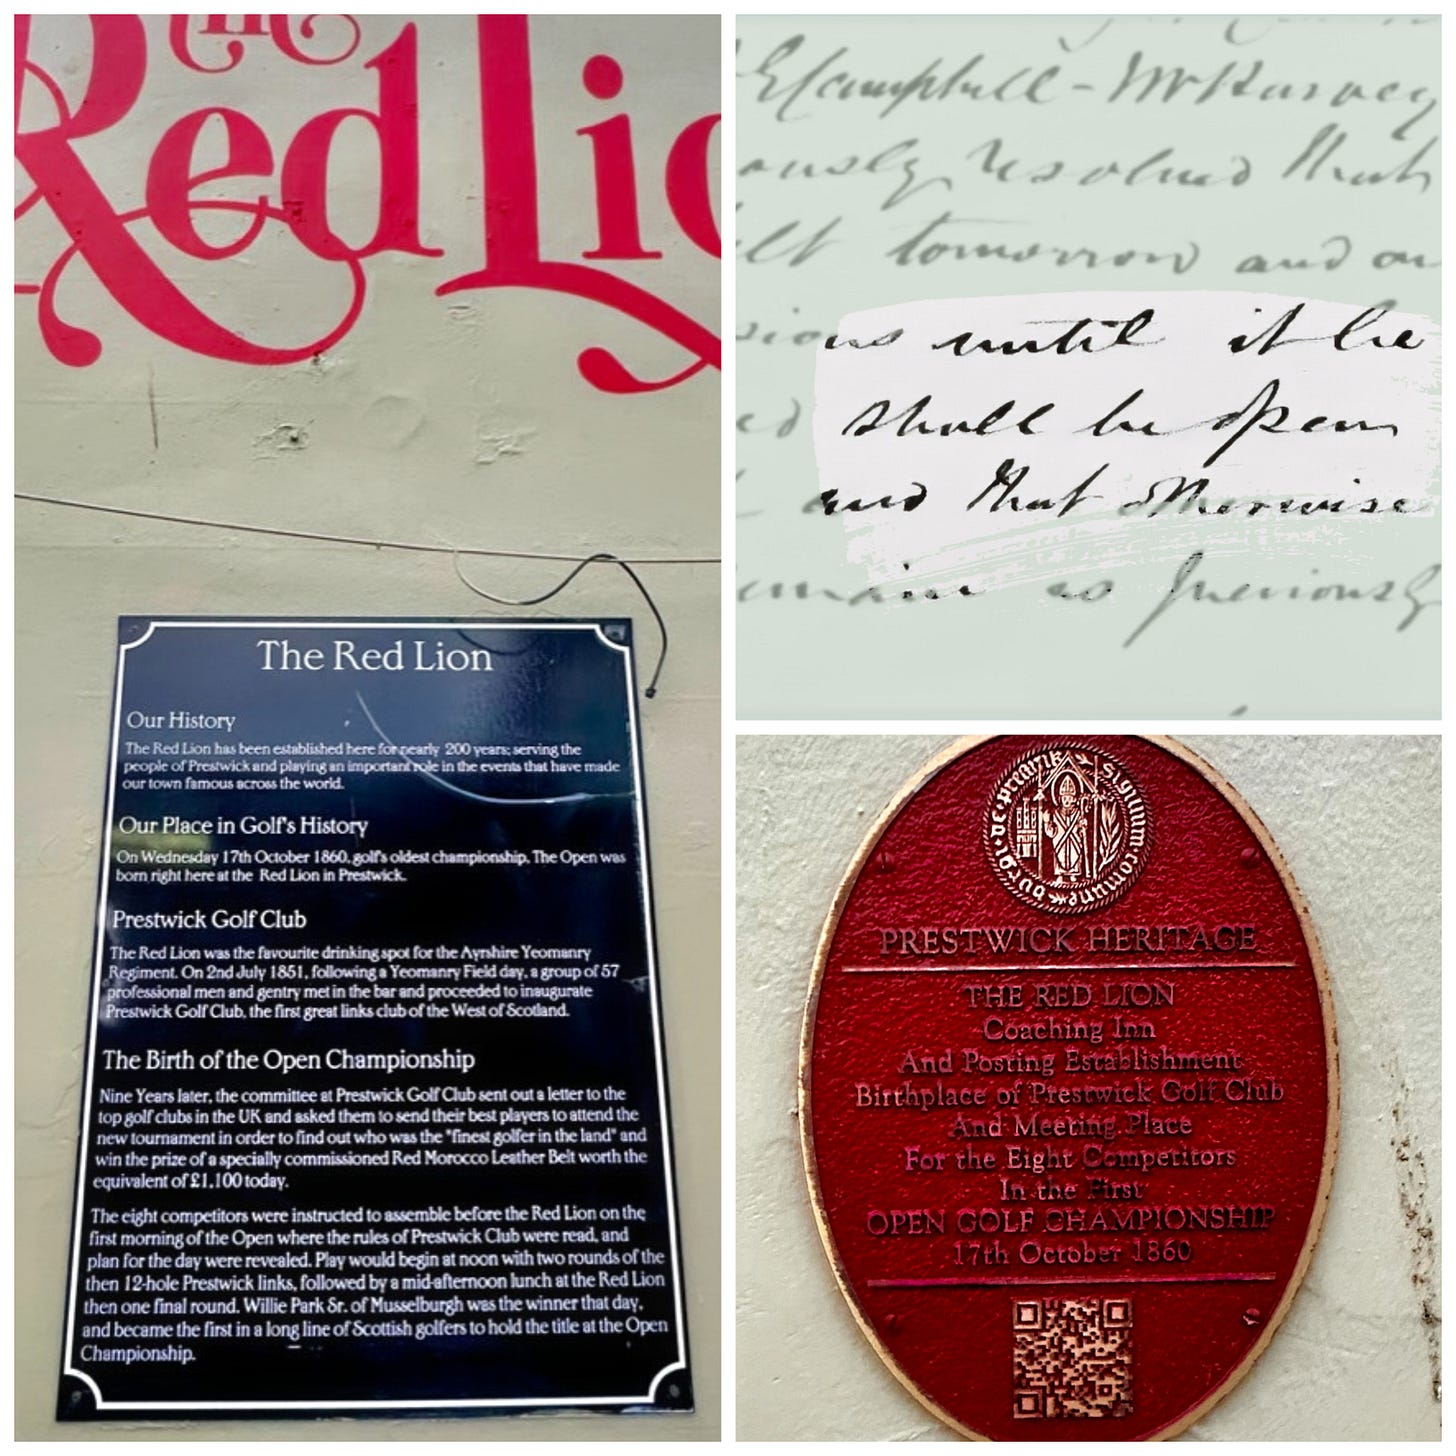 the
Red Lio
The Red Lion
Our History
The Red Lion has been established here for nearly 200 years; serving the
people of Prestwick and playing an important role in the events that have made
our town famous across the world.
Our Place in Golf's History
On Wednesday 17th October 1860, golf's oldest championship, The Open was
born right here at the Red Lion in Prestwick.
Prestwick Golf Club
The Red Lion was the favourite drinking spot for the Ayrshire Yeomanry
Regiment. On 2nd July 1851, following a Yeomanry Field day, a group of 57
professional men and gentry met in the bar and proceeded to inaugurate
Prestwick Golf Club, the first great links club of the West of Scotland.
The Birth of the Open Championship
Nine Years later, the committee at Prestwick Golf Club sent out a letter to the
top golf clubs in the UK and asked them to send their best players to attend the
new tournament in order to find out who was the "finest golfer in the land" and
win the prize of a specially commissioned Red Morocco Leather Belt worth the
equivalent of £1,100 today.
The eight competitors were instructed to assemble before the Red Lion on the
first morning of the Open where the rules of Prestwick Club were read, and
plan for the day were revealed. Play would begin at noon with two rounds of the
then 12-hole Prestwick links, followed by a mid-afternoon lunch at the Red Lion
then one final round. Willie Park Sr. of Musselburgh was the winner that day,
and became the first in a long line of Scottish golfers to hold the title at the Open
Championship.
Campbell - Mr
ously resolved that
elt tomorrow and on
sions until it be
ed shall be open
and that otherwise
emain as previously
sigillum commune burgi de prestwik
PRESTWICK HERITAGE
THE RED LION
Coaching Inn
And Posting Establishment
Birthplace of Prestwick Golf Club
And Meeting Place
For the Eight Competitors
In the First
OPEN GOLF CHAMPIONSHIP
17th October 1860